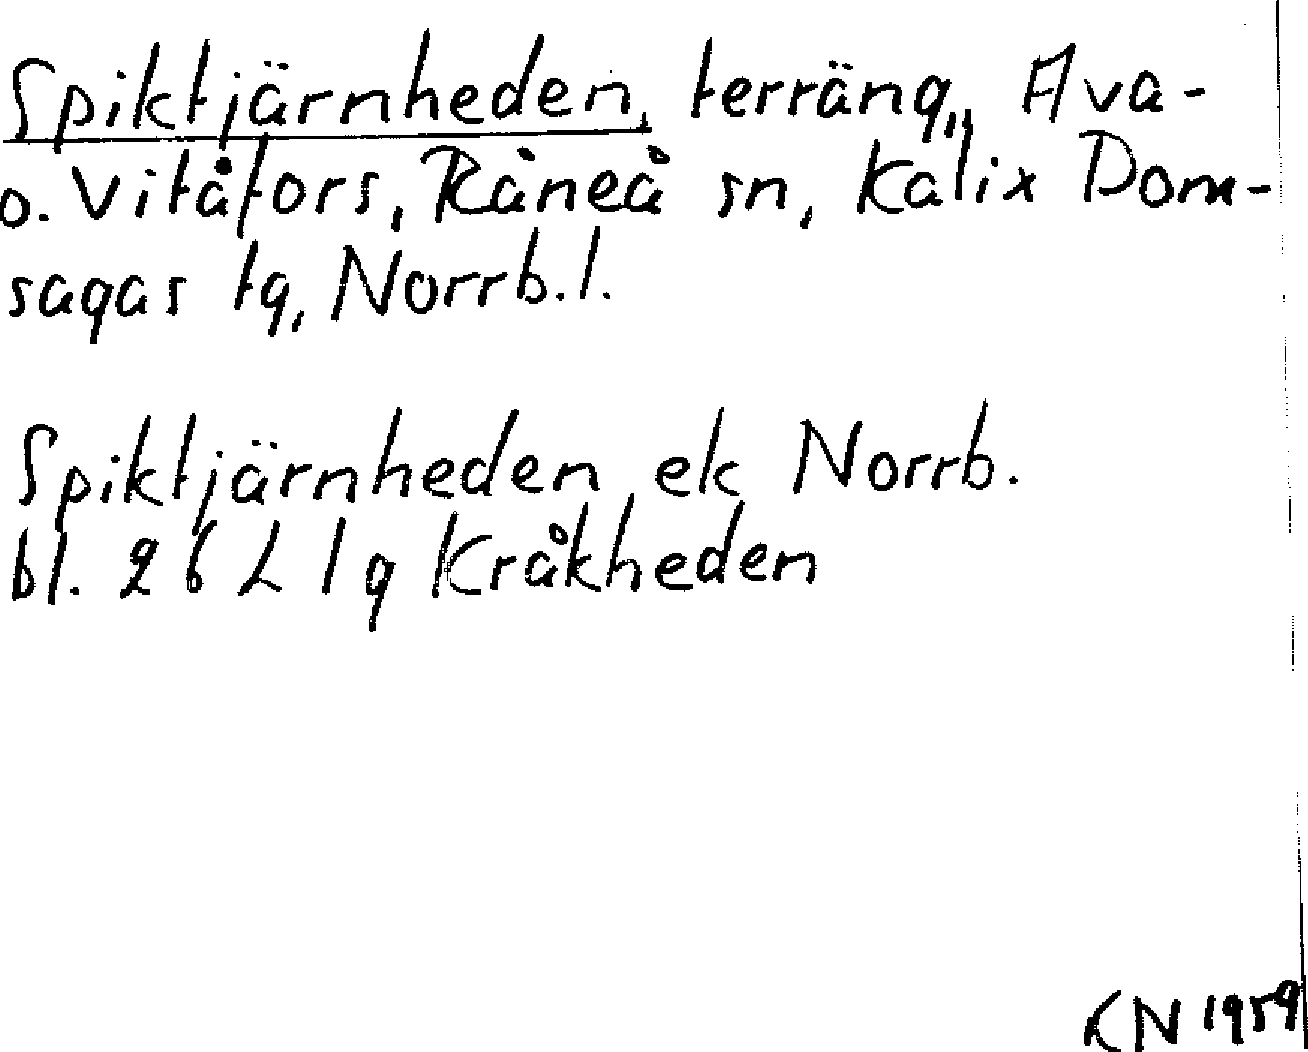 Spiktjärnheden, terräng, Ava-
o. Vitåfors, Råneå sn, Kalix Dom-
sagas tg, Norrb. l.
Spiktjärnheden ek Norrb.
bl. 26 L 1g Kråkheden
KN 1959